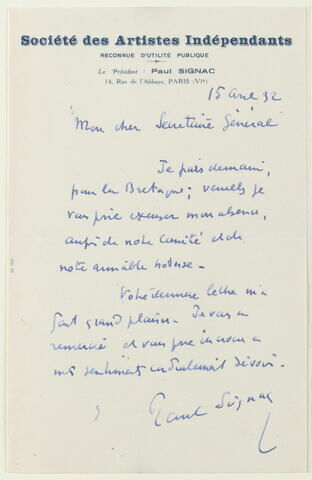 Société des Artistes Indépendants
RECONNUE D'UTILITÉ PUBLIQUE
Le Président : Paul SIGNAC
14, Rue de l'Abbaye, PARIS (VIe)
15 avril 32
Mon cher Secrétaire Général
Je pars demain,
pour la Bretagne ; veuillez je
vous prie excuser mon absence,
auprès de notre Comité et de
notre aimable
Votre dernière lettre m'a
fait grand plaisir. Je vous en
remercie et vous prie de croire à
mes sentiments cordialement dévoués.
Paul Signac